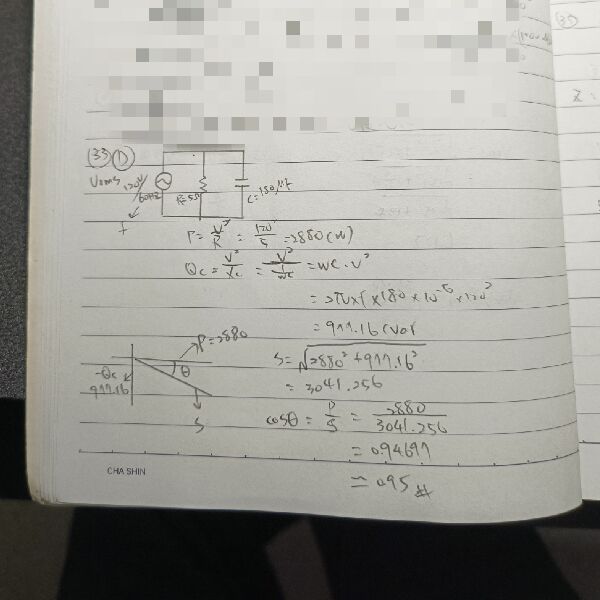 (33) (D)
Vrms 120V/60Hz R=5Ω
f
P = V²/R = 120²/5 = 2880 (W)
Qc = V²/Xc = V²/(1/wc) = wc · V²
= 2π × f × 180 × 10⁻⁶ × 120²
= 977.16 (var
P=2880
S = √2880² + 977.16²
θ
-Qc
977.16
= 3041.256
S
cosθ = P/S = 2880/3041.256
= 0.94697
≒ 0.95 #
CHA SHIN
Z =